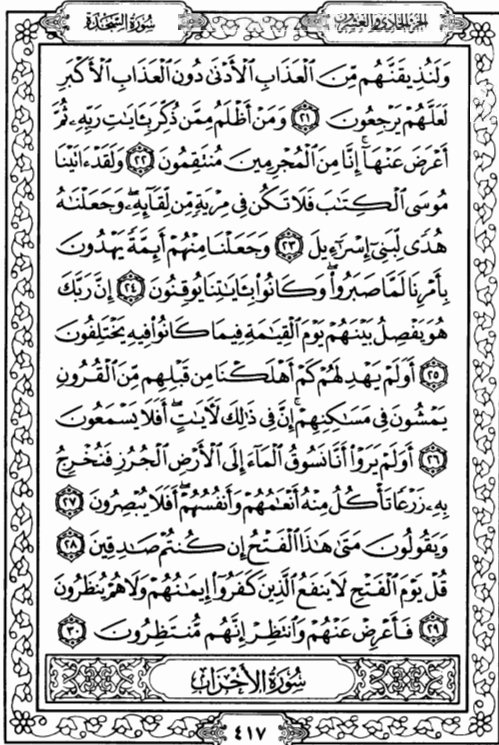 سُورَةُ السَّجْدَةِ
الجزء الحادي والعشرون
وَلَنُذِيقَنَّهُم مِّنَ الْعَذَابِ الْأَدْنَىٰ دُونَ الْعَذَابِ الْأَكْبَرِ
لَعَلَّهُمْ يَرْجِعُونَ ٢١ وَمَنْ أَظْلَمُ مِمَّن ذُكِّرَ بِـَٔايَاتِ رَبِّهِۦ ثُمَّ
أَعْرَضَ عَنْهَا ۚ إِنَّا مِنَ الْمُجْرِمِينَ مُنتَقِمُونَ ٢٢ وَلَقَدْ ءَاتَيْنَا
مُوسَى الْكِتَٰبَ فَلَا تَكُن فِي مِرْيَةٍ مِّن لِّقَآئِهِۦ ۖ وَجَعَلْنَٰهُ
هُدًى لِّبَنِىٓ إِسْرَٰٓءِيلَ ٢٣ وَجَعَلْنَا مِنْهُمْ أَئِمَّةً يَهْدُونَ
بِأَمْرِنَا لَمَّا صَبَرُوا۟ ۖ وَكَانُوا۟ بِـَٔايَٰتِنَا يُوقِنُونَ ٢٤ إِنَّ رَبَّكَ
هُوَ يَفْصِلُ بَيْنَهُمْ يَوْمَ الْقِيَٰمَةِ فِيمَا كَانُوا۟ فِيهِ يَخْتَلِفُونَ
٢٥ أَوَلَمْ يَهْدِ لَهُمْ كَمْ أَهْلَكْنَا مِن قَبْلِهِم مِّنَ الْقُرُونِ
يَمْشُونَ فِى مَسَٰكِنِهِمْ ۚ إِنَّ فِى ذَٰلِكَ لَـَٔايَٰتٍ ۖ أَفَلَا يَسْمَعُونَ
٢٦ أَوَلَمْ يَرَوْا۟ أَنَّا نَسُوقُ الْمَآءَ إِلَى الْأَرْضِ الْجُرُزِ فَنُخْرِجُ
بِهِۦ زَرْعًا تَأْكُلُ مِنْهُ أَنْعَٰمُهُمْ وَأَنفُسُهُمْ ۖ أَفَلَا يُبْصِرُونَ ٢٧
وَيَقُولُونَ مَتَىٰ هَٰذَا الْفَتْحُ إِن كُنتُمْ صَٰدِقِينَ ٢٨
قُلْ يَوْمَ الْفَتْحِ لَا يَنفَعُ الَّذِينَ كَفَرُوٓا۟ إِيمَٰنُهُمْ وَلَا هُمْ يُنظَرُونَ
٢٩ فَأَعْرِضْ عَنْهُمْ وَانتَظِرْ إِنَّهُم مُّنتَظِرُونَ ٣٠
سُورَةُ الْأَحْزَابِ
٤١٧